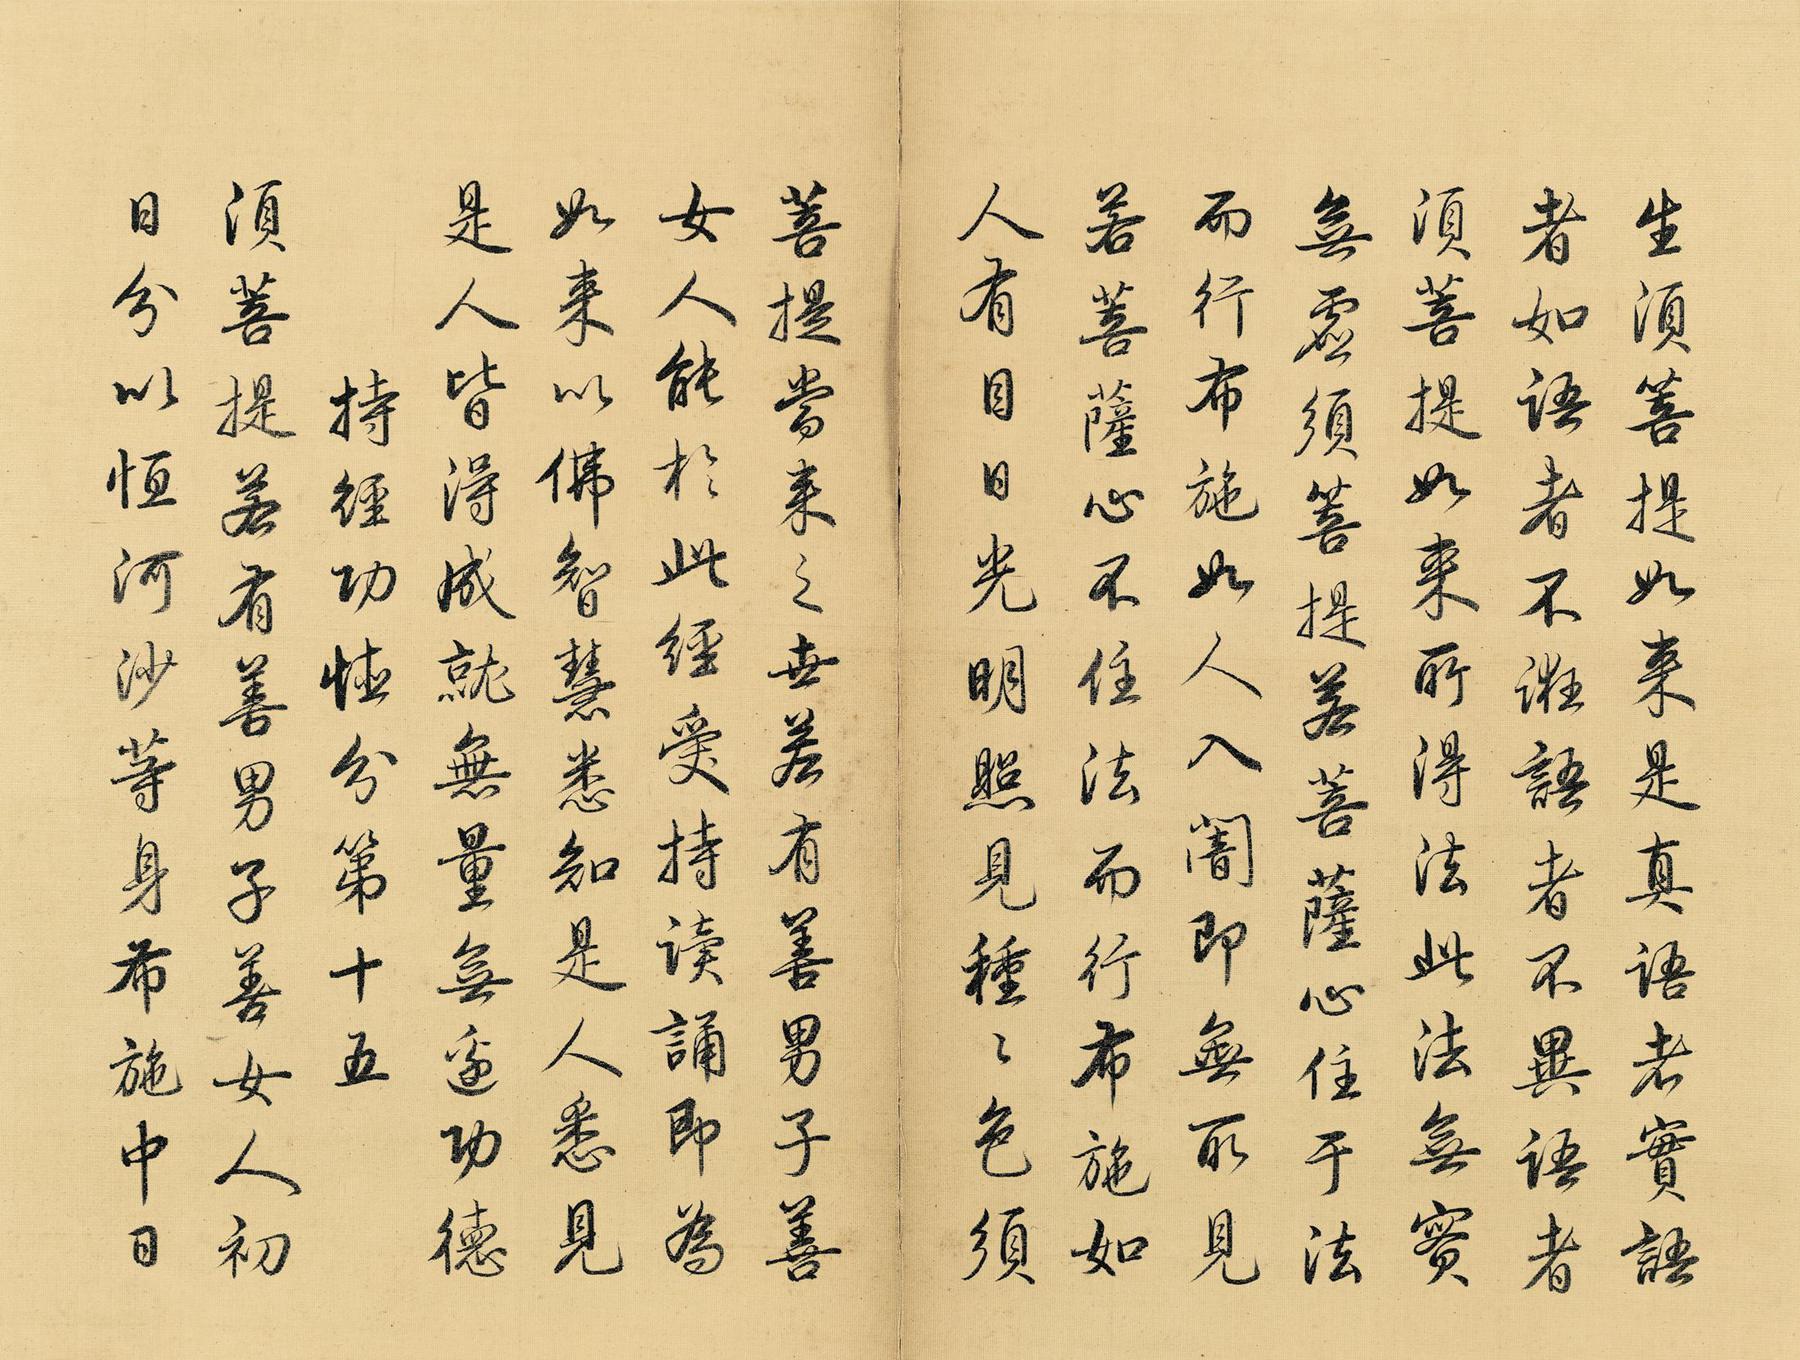 生須菩提如来是真語者實語
者如語者不誑語者不異語者
須菩提如来所得法此法無實
無虛須菩提若菩薩心住于法
而行布施如人入闇即無所見
若菩薩心不住法而行布施如
人有目日光明照見種〻色須
菩提當来之世若有善男子善
女人能於此經受持读誦即為
如来以佛智慧悉知是人悉見
是人皆得成就無量無邊功德
持經功德分第十五
須菩提若有善男子善女人初
日分以恒河沙等身布施中日